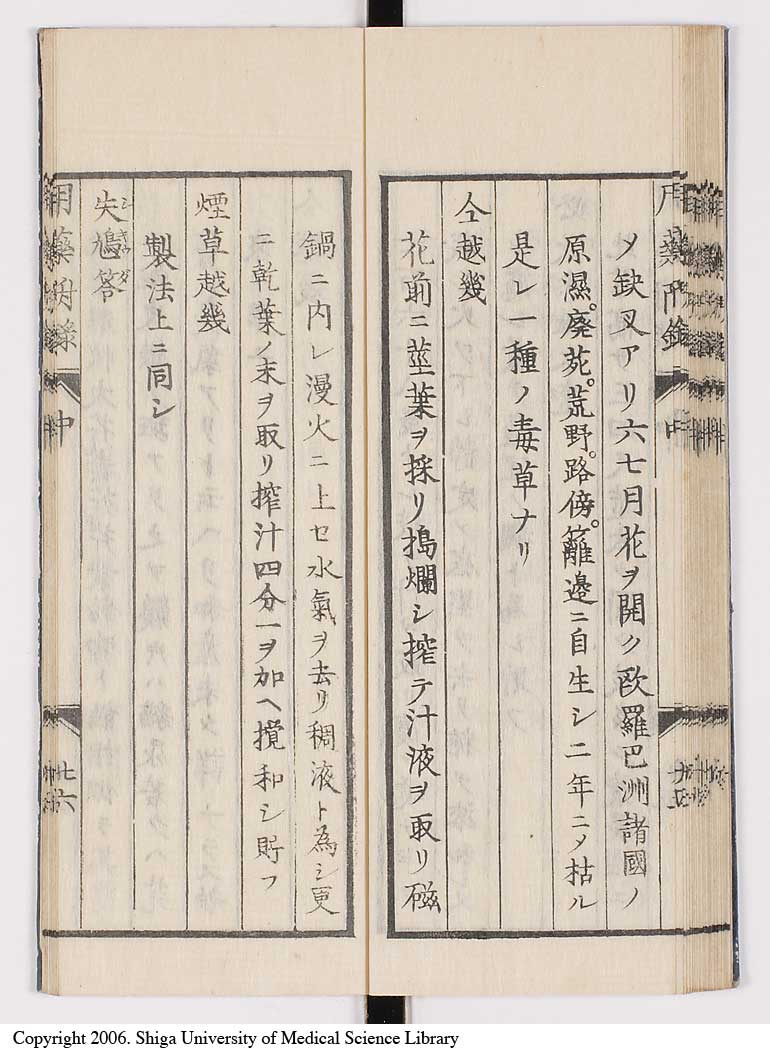 〆缺叉アリ六七月花ヲ開ク歐羅巴洲諸國ノ
原濕。廃苑。荒野。路傍。籬邊ニ自生シ二年ニ〆枯ル
是レ一種ノ毒草ナリ
仝越幾
花前ニ莖葉ヲ採リ搗爛シ搾テ汁液ヲ取リ磁
鍋ニ内レ漫火ニ上セ水氣ヲ去リ稠液ト為シ更
ニ乾葉ノ末ヲ取リ搾汁四分一ヲ加ヘ攪和シ貯フ
煙草越幾
製法上ニ同シ
失鳩答
シキウダ
用藥附錄
中
廿六
Copyright 2006. Shiga University of Medical Science Library